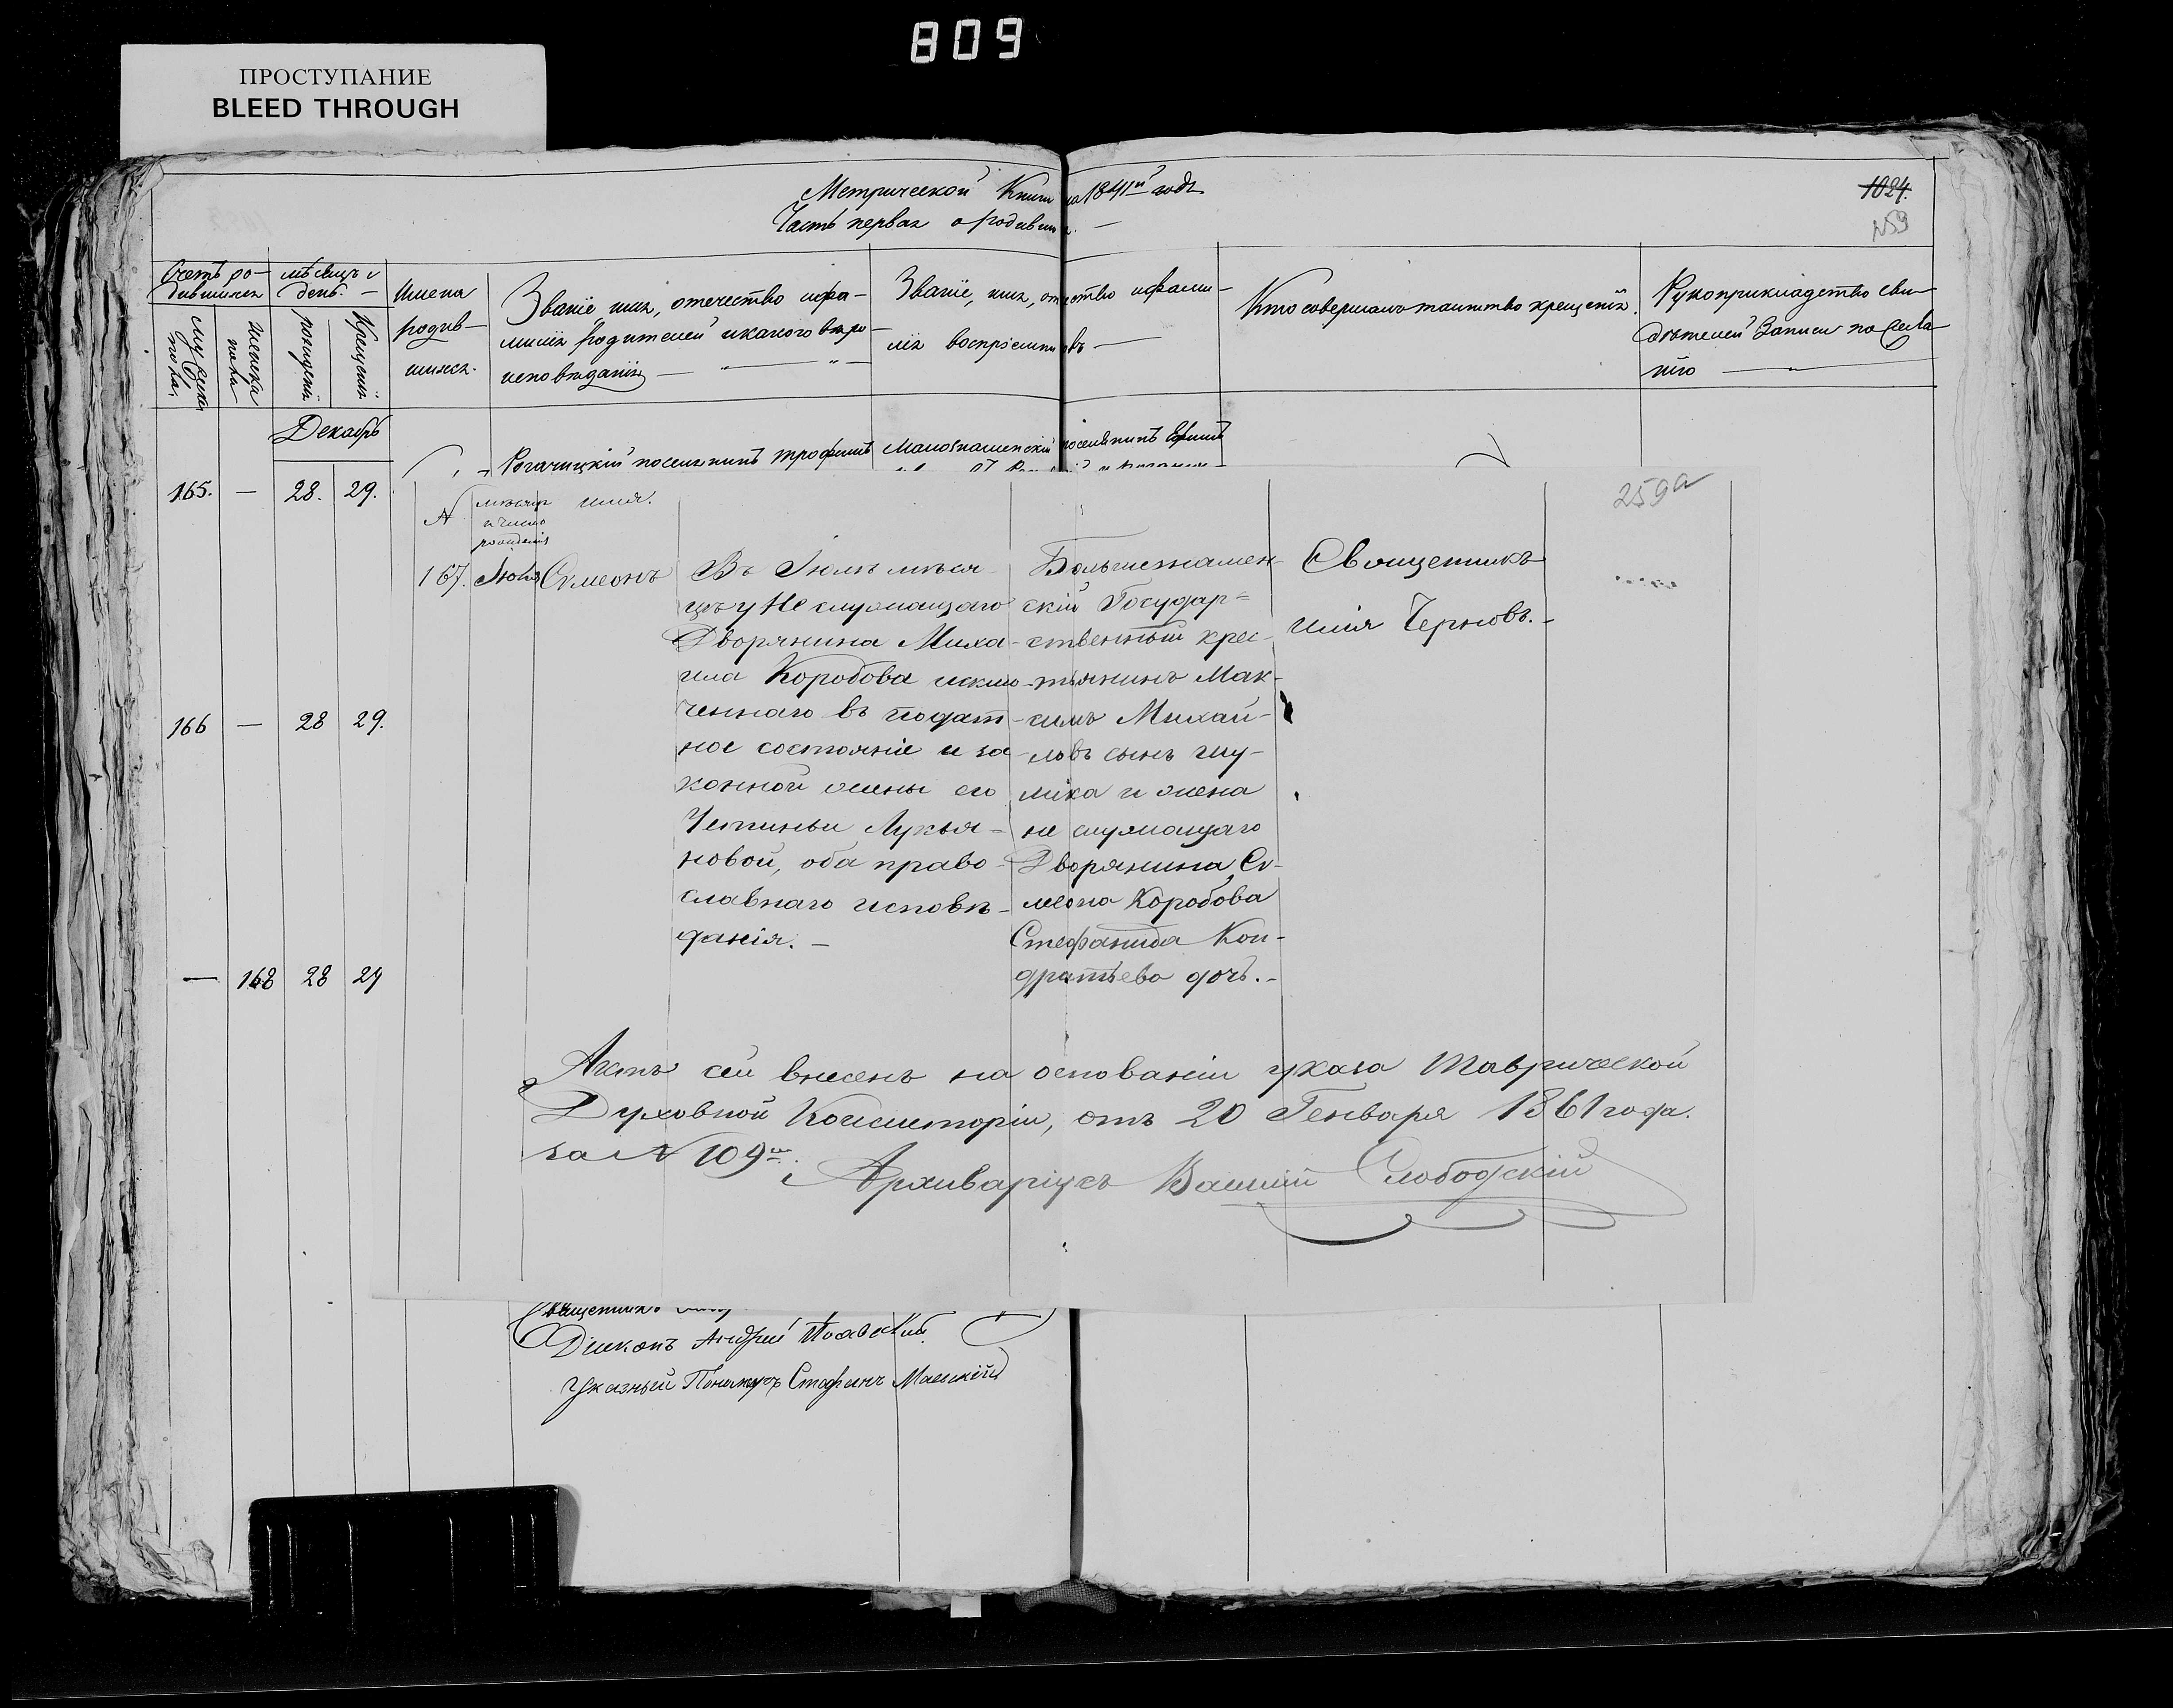 809
ПРОСТУПАНИЕ
BLEED THROUGH
Метрической Книги на 1841й годъ
1024.
Часть первая о родившихся. —
Счетъ ро-
дившихся
мѣсяцъ и
день. —
Мужска
пола.
Женска
пола
рожденія
Крещенія
Имена
родив-
шихся.
Званіе имя, отечество и фа-
милія родителей и какого вѣро-
исповѣданія —
Званіе, имя, отчество и фами-
лія воспріемниковъ —
Кто совершалъ таинство крещенія.
Рукоприкладство сви-
дѣтелей записи по жела-
нію —
Декабрь
Рогачицкій поселянинъ трофимъ
Малознаменскій поселянинъ Ефимъ
165. — 28. 29.
166 — 28 29.
— 168 28 29
259а
№ мѣсяцъ и число рожденія имя.
167. Іюля Симеонъ
Въ Іюлѣ мѣся-
цѣ у Не служащаго
Дворянина Миха-
ила Коробова исклю-
ченнаго въ подат-
ное состояніе и за-
конной жены его
Устиньи Лукья-
новой, оба право-
славнаго исповѣ-
данія. —
Большезнамен-
скій Государ=
ственный крес-
тьянинъ Мак-
симъ Михай-
ловъ сынъ Шу-
лика и жена
не служащаго
Дворянина Си-
меона Коробова
Стефанида Кон-
дратьева дочь. -
Священникъ
Илія Черновъ. -
Актъ сей внесенъ на основаніи указа Таврической
Духовной Консисторіи, отъ 20 Генваря 1861 года.
за № 109м.
Архиваріусъ Василій Слободскій
Священникъ
Діаконъ Андрей
Указный Пономарь Стефанъ